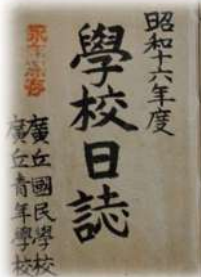 昭和十六年度
學校日誌
永年保存
廣丘國民學校
廣丘青年學校